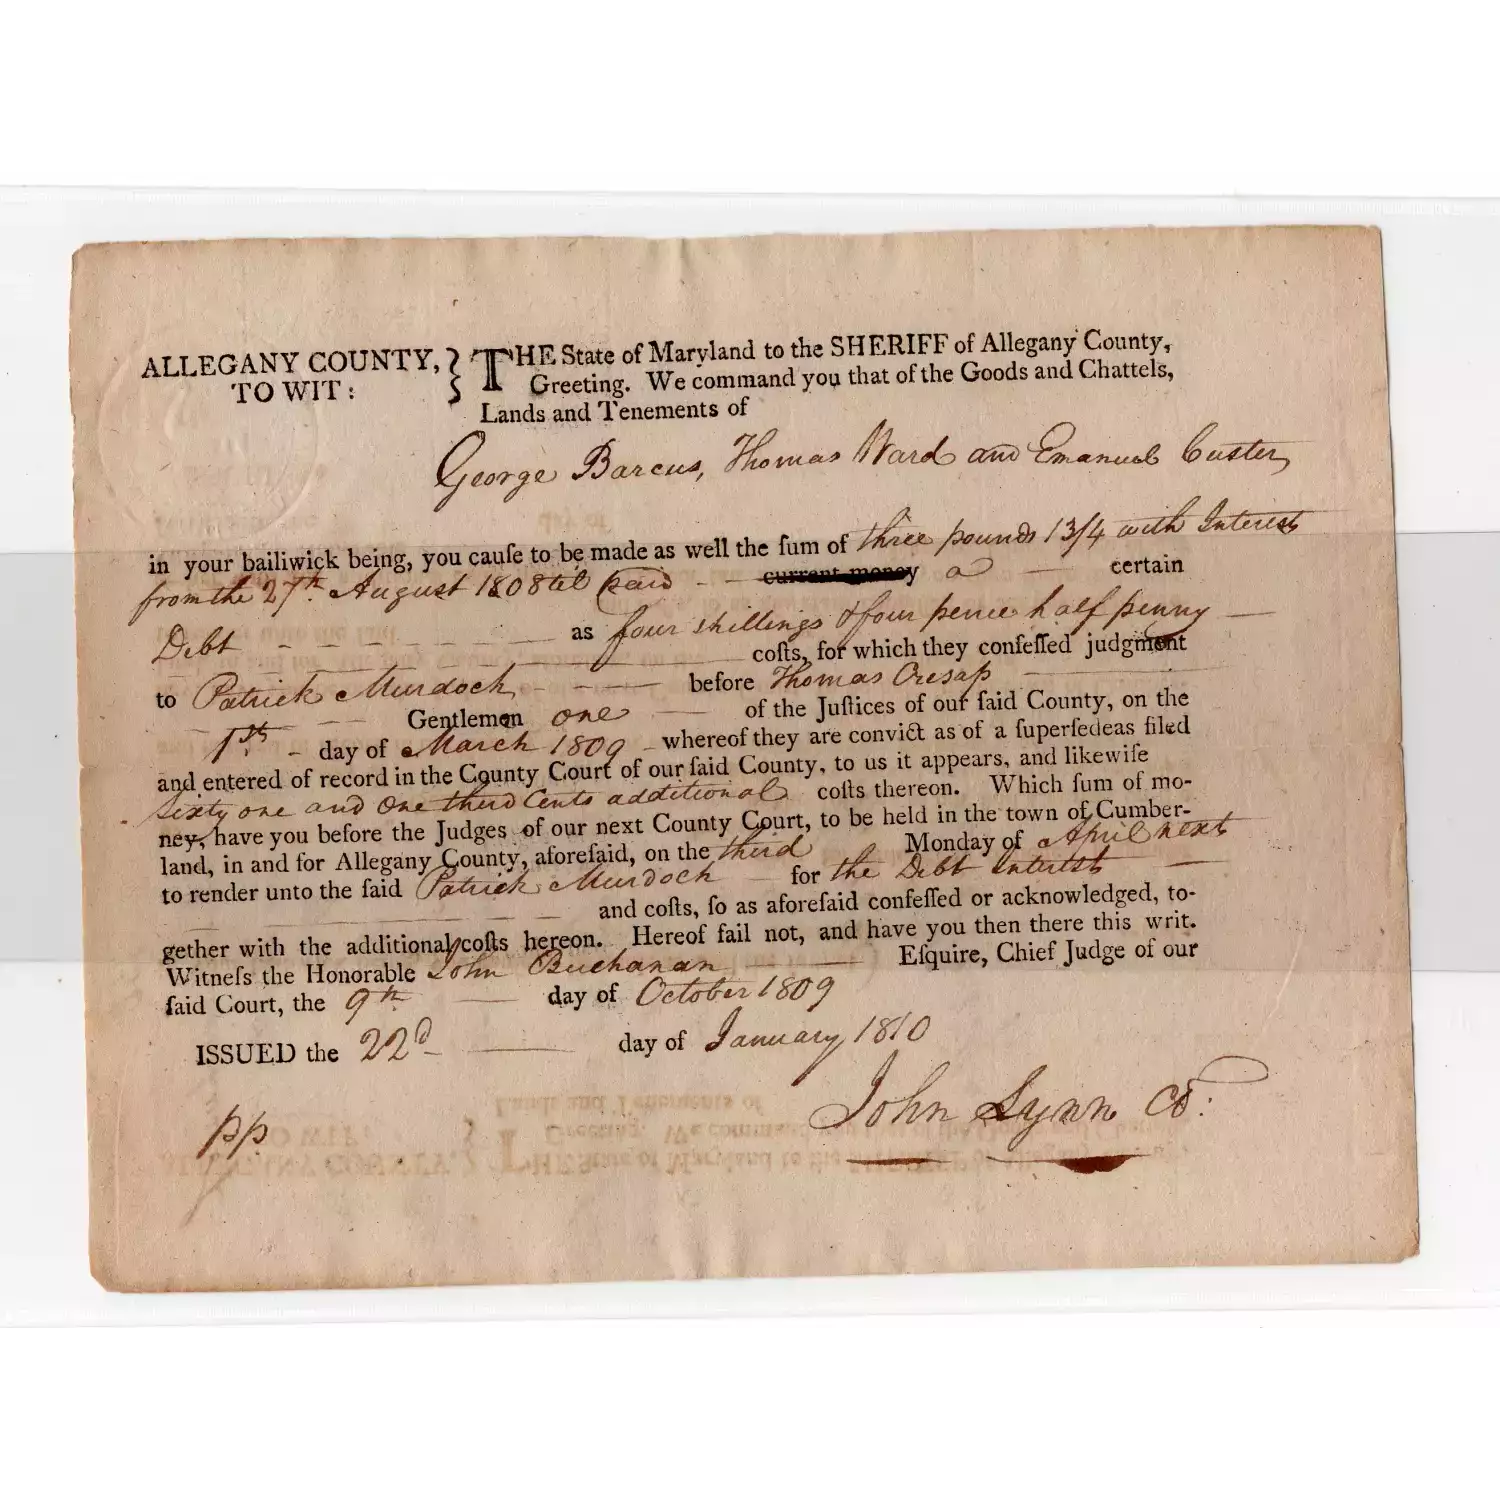 ALLEGANY COUNTY, TO WIT:
THE State of Maryland to the SHERIFF of Allegany County,
Greeting. We command you that of the Goods and Chattels,
Lands and Tenements of
George Barcus, Thomas Ward and Emanuel Custer,
in your bailiwick being, you cauſe to be made as well the ſum of three pounds 13/4 with Interest
from the 27th. August 1808 til paid - - current money a — certain
Debt - - - - — as four shillings & four pence half penny —
coſts, for which they confeſſed judgment
to Patrick Murdoch, - - — before Thomas Cresap
Gentlemen one — of the Juſtices of our ſaid County, on the
1st. - day of March 1809 - whereof they are convict as of a ſuperſedeas filed
and entered of record in the County Court of our ſaid County, to us it appears, and likewiſe
Sixty one and one third Cents additional coſts thereon. Which ſum of mo-
ney, have you before the Judges of our next County Court, to be held in the town of Cumber-
land, in and for Allegany County, aforeſaid, on the third Monday of April next
to render unto the ſaid Patrick Murdoch — for the Debt Interest —
and coſts, ſo as aforeſaid confeſſed or acknowledged, to-
gether with the additional coſts hereon. Hereof fail not, and have you then there this writ.
Witneſs the Honorable John Buchanan — — Eſquire, Chief Judge of our
ſaid Court, the 9th — day of October 1809
ISSUED the 22d — day of January 1810
pp.
John Lynn
Lands and Tenements of
Greeting. We command
ALLEGANY COUNTY, THE State of Maryland to the